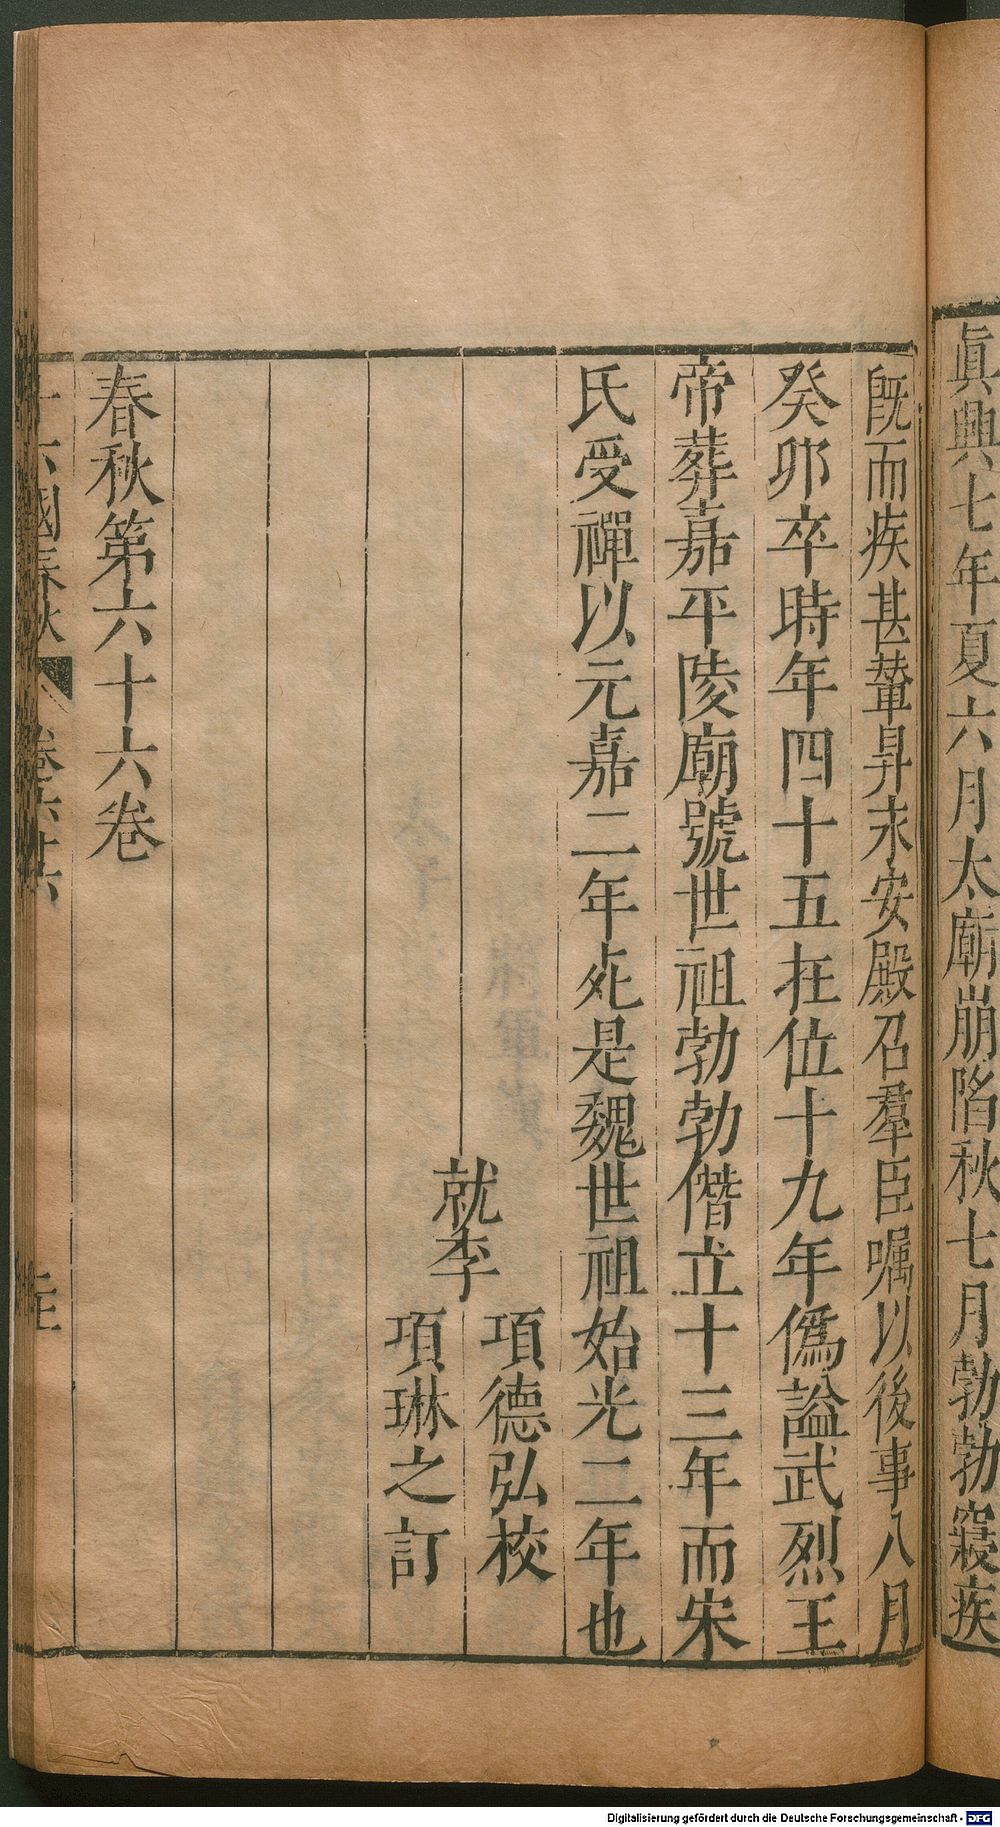 眞興七年夏六月太廟崩陷秋七月勃勃寢疾
旣而疾甚輦昇末安殿召羣臣嘱以後事八月
癸卯卒時年四十五在位十九年僞謚武烈王
帝葬嘉平陵廟號世祖勃勃僭立十三年而宋
氏受禪以元嘉二年死是魏世祖始光二年也
就李
項德弘校
項琳之訂
春秋第六十六卷
十六國春秋 卷六十六
Digitalisierung gefördert durch die Deutsche Forschungsgemeinschaft - DFG